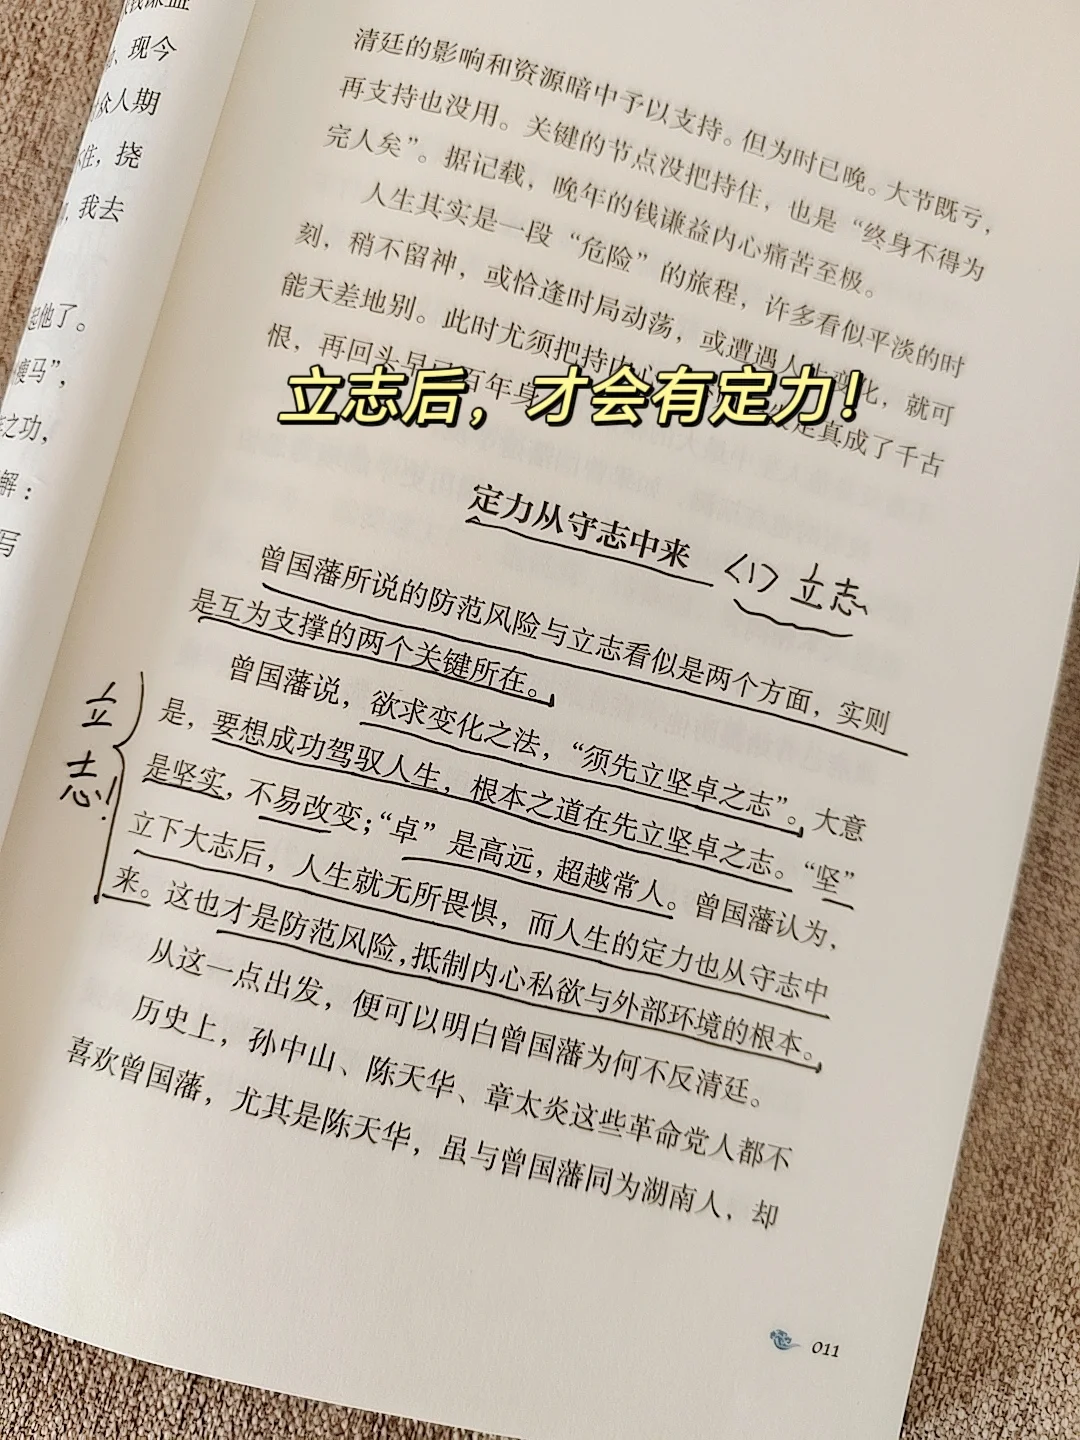 钱谦益
现今
众人期
住，挠
我去
起他了。
瘦马”，
之功，
解：
写
清廷的影响和资源暗中予以支持。但为时已晚。大节既亏，
再支持也没用。关键的节点没把持住，也是“终身不得为
完人矣”。据记载，晚年的钱谦益内心痛苦至极。
人生其实是一段“危险”的旅程，许多看似平淡的时
刻，稍不留神，或恰逢时局动荡，或遭遇人生变化，就可
能天差地别。此时尤须把持内心 定真成了千古
恨，再回头早已百年身
立志后，才会有定力！
定力从守志中来
<1> 立志
曾国藩所说的防范风险与立志看似是两个方面，实则
是互为支撑的两个关键所在。
曾国藩说，欲求变化之法，“须先立坚卓之志”。大意
是，要想成功驾驭人生，根本之道在先立坚卓之志。“坚”
是坚实，不易改变；“卓”是高远，超越常人。曾国藩认为，
立下大志后，人生就无所畏惧，而人生的定力也从守志中
来。这也才是防范风险，抵制内心私欲与外部环境的根本。
立志！
从这一点出发，便可以明白曾国藩为何不反清廷。
历史上，孙中山、陈天华、章太炎这些革命党人都不
喜欢曾国藩，尤其是陈天华，虽与曾国藩同为湖南人，却
011